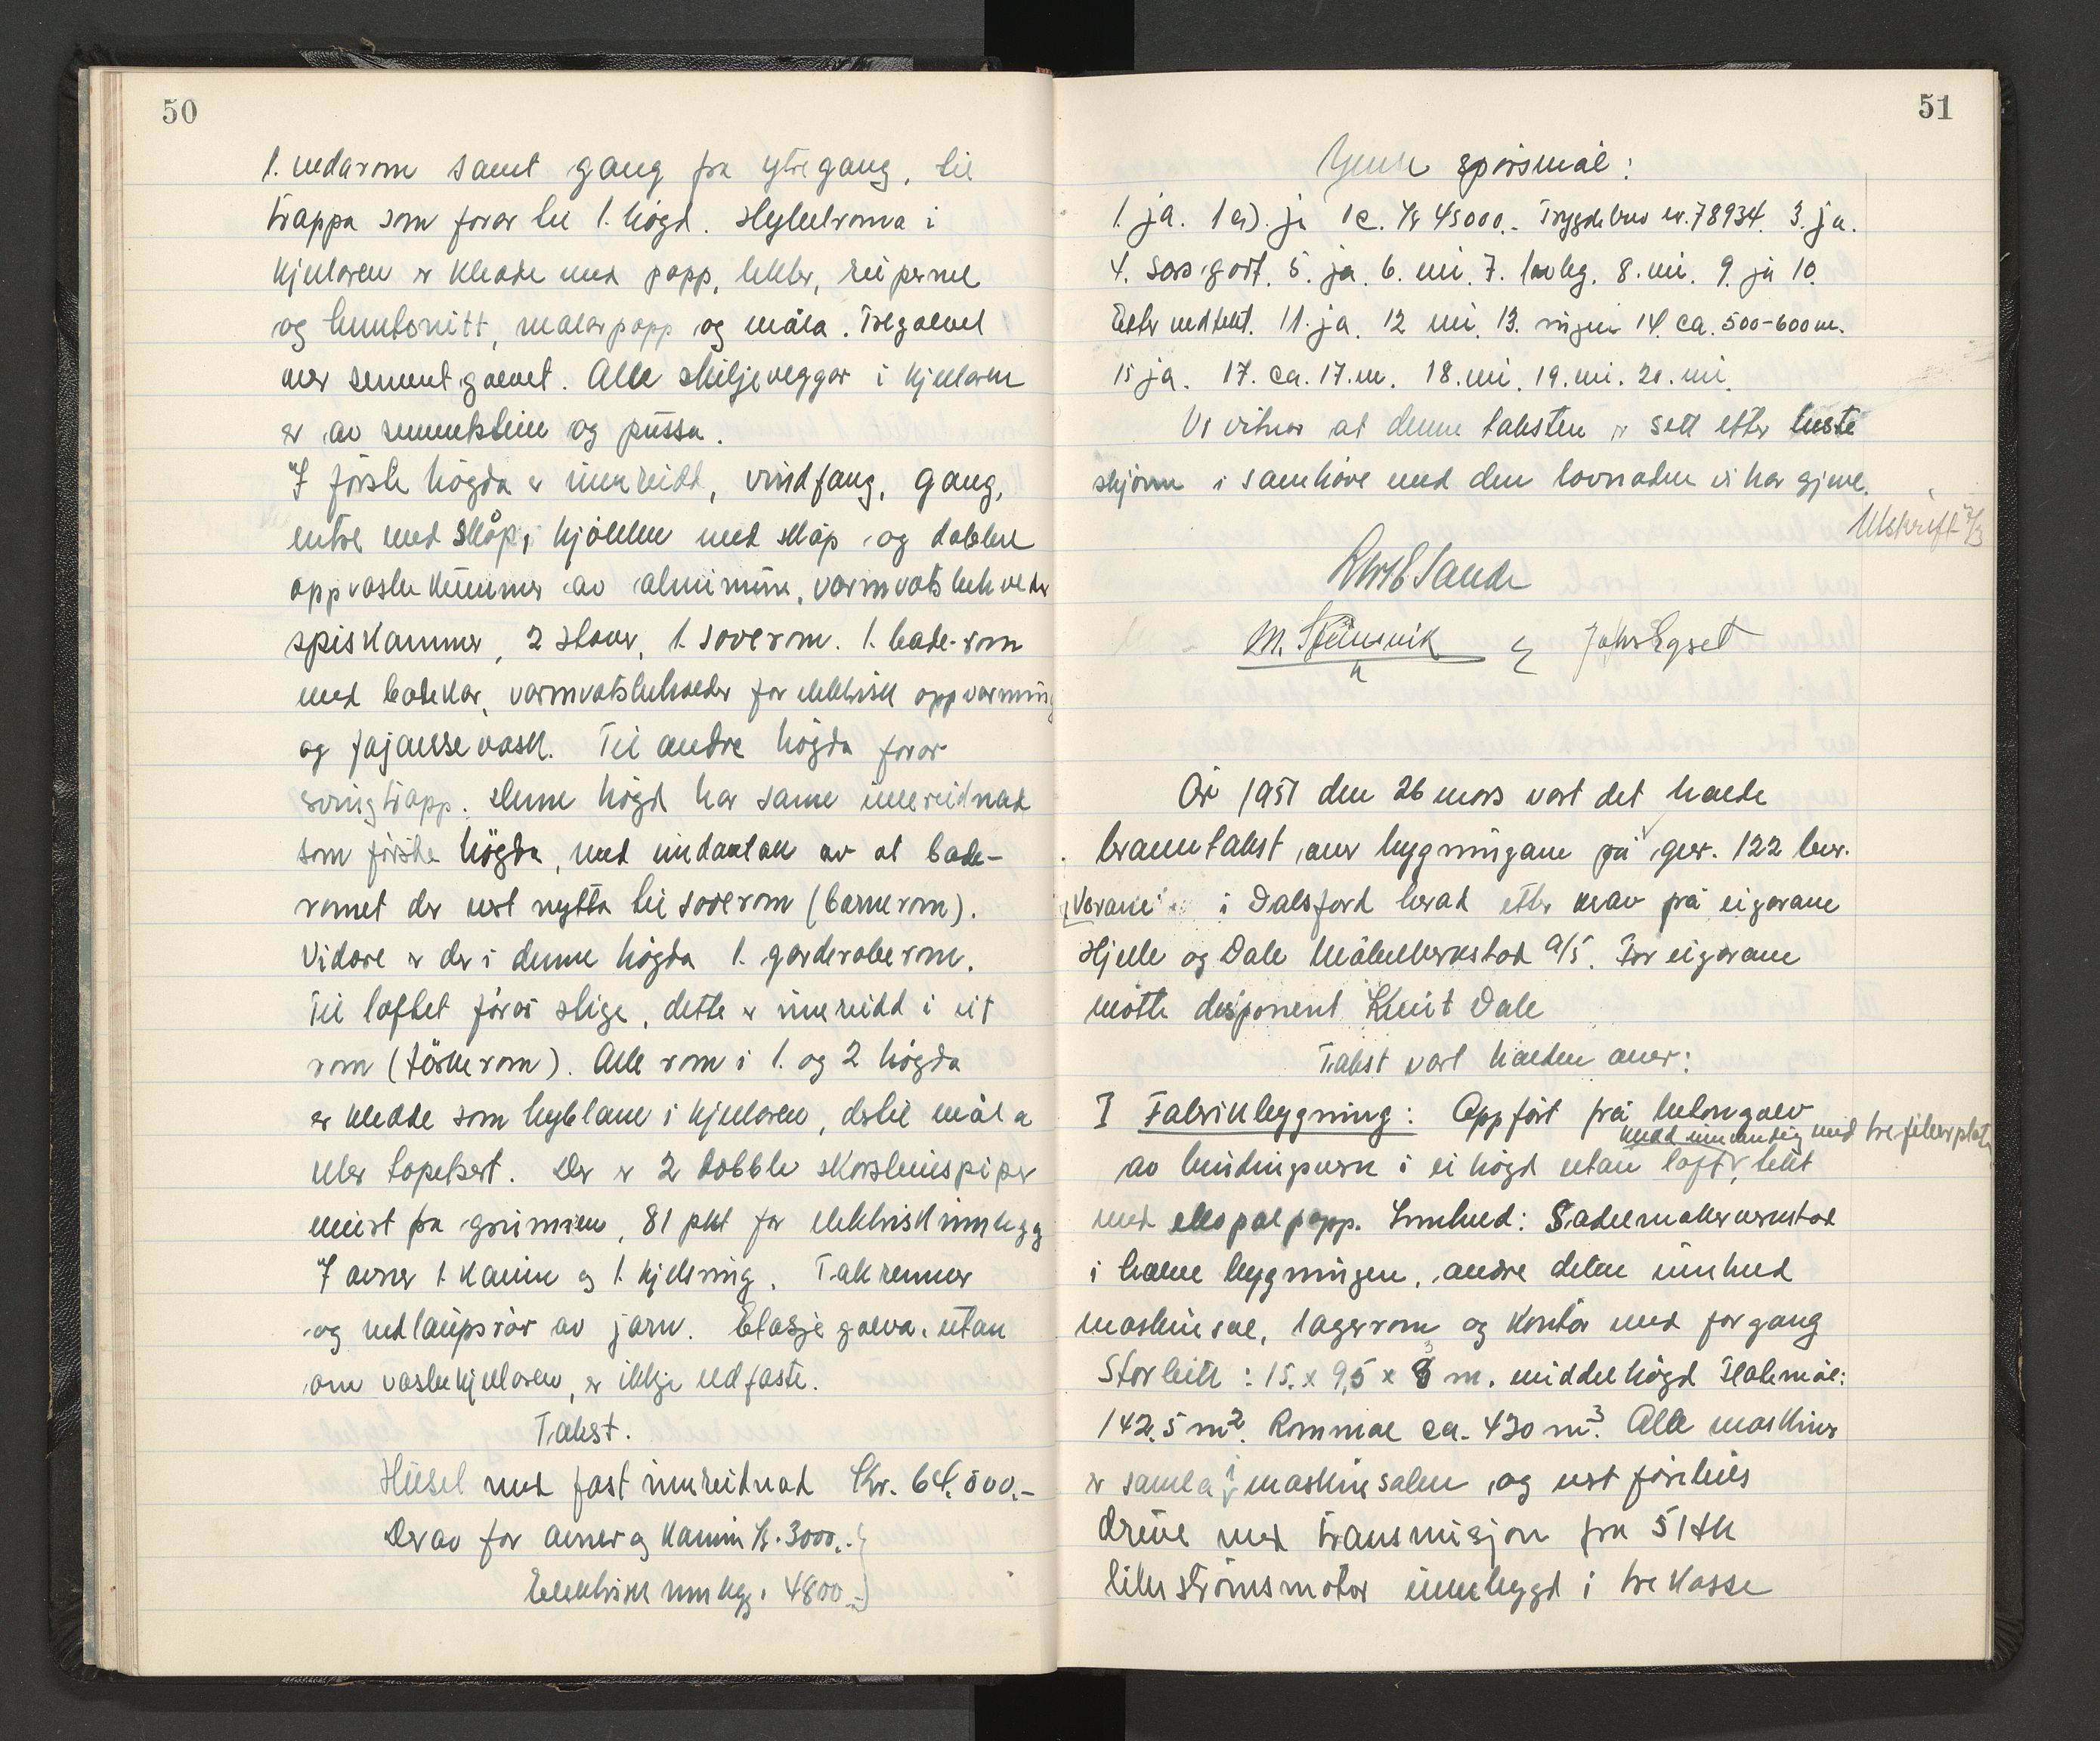 50
1. vedarom samt gang fra ytregang, til
trappa som förar til 1. högd. Hybelroma i
kjellaren er kledde med papp, lekter, reipanel
og huntonitt, malarpapp og måla. Tregolvet
over sementgolvet. Alle skiljeveggar i kjellaren
er av sementstein og pussa.
I förste högda er innreidd, vindfang, gang,
entre med skåp, kjökken med skåp og dobbel
oppvaskkummer av aluminium, varmvatsbehveder
spiskammer, 2 stover, 1. soverom. 1. bade-rom
med badekar, varmvatsbehalder for elektrisk oppvarming
og fajansevask. Til andre högda förar
svingtrapp. Denne högd har same innreidnad
som förske högda, med undantak av at bade-
romet der vert nytta til soverom (barnerom).
Vidare er der i denne högda 1. garderoberom.
Til loftet förar stige, dette er innreidd i eit
rom (törkerom). Alle rom i 1. og 2 högda
er kledde som hyblane i kjellaren, dertil måla
eller tapetsert. Der er 2 dobble skorsteinspiper
murt fra grunnen, 81 pkt for elektrisk innlegg
7 ovner 1. kamin og 1. kjelring. Takrenner
og nedlaupsrör av jarn. Etasjegolva, utan
om vaskekjellaren, er ikkje eldfaste.
Takst.
Huset med fast innreidnad Kr. 64.500.-
Derav for ovner og kamin kr. 3000.-
Elektrisk innlegg. 4800.-
51
Ymse spörsmål:
1. ja. 1 a). ja 1c. Kr 45000.- Trygdebrev nr. 78934. 3. ja.
4. Sers godt. 5. ja. 6. nei. 7. lovleg. 8. nei. 9. ja 10.
Etter vedtekt. 11. ja. 12 nei. 13. ingen 14. ca. 500-600 m.
15 ja. 17. ca. 17. m. 18. nei. 19. nei. 20. nei.
Vi vitnar at denne taksten er sett etter beste
skjönn i samhöve med den lovnaden vi har gjeve.
Utskrift 7/3
Sande
M. Steinsvik Johs Egset
År 1951 den 26 mars vart det halde
branntakst over bygningane på gnr. 122 bnr.
i Dalsfjord herad etter krav frå eigarane
Hjelle og Dale Möbelverkstad A/S. For eigarane
mötte disponent Knut Dale
Takst vart halden over:
I Fabrikbygning: Oppfört frå betongolv
med innvendig med trefiberplater
av bindingsverk i ei högd utan loft, tekt
med ekspalpapp. Innhed: Sadelmakerverkstad
i halve bygningen, andre delen innhed
maskinsal, lagerrom og kontor med forgang
Storleik: 15. x 9,5 x 3 m. middelhögd Flatemål:
142.5 m². Rommål ca. 430 m³. Alle maskiner
er samla i maskinsalen og vert förebels
drive med transmisjon fra 5 Hk
likeströmsmotor innebygd i trekasse